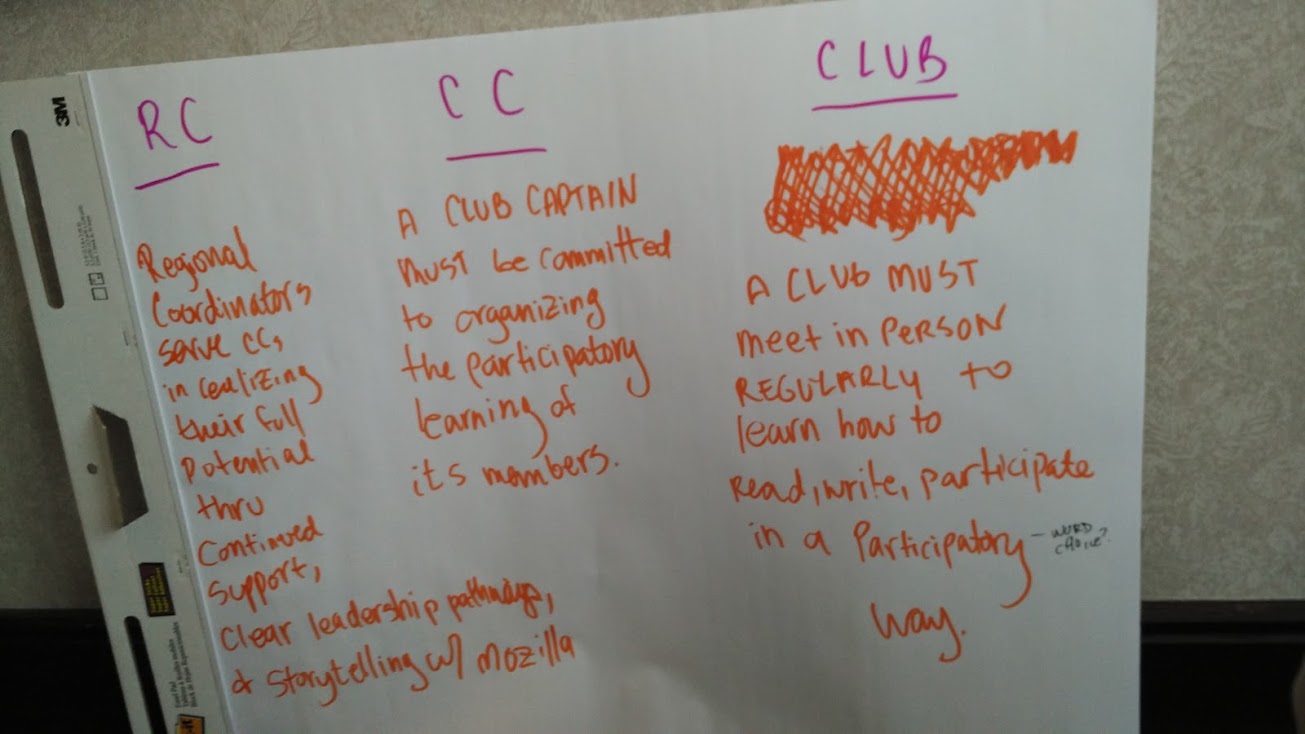 3M
RC
Regional
Coordinators
serve CCs
in realizing
their full
potential
thru
continued
support,
clear leadership pathways,
& storytelling w/ mozilla
CC
A CLUB CAPTAIN
must be committed
to organizing
the participatory
learning of
its members.
CLUB
A CLUB MUST
meet in PERSON
REGULARLY to
learn how to
Read, write, participate
in a Participatory
way.
– WORD
CHOICE?